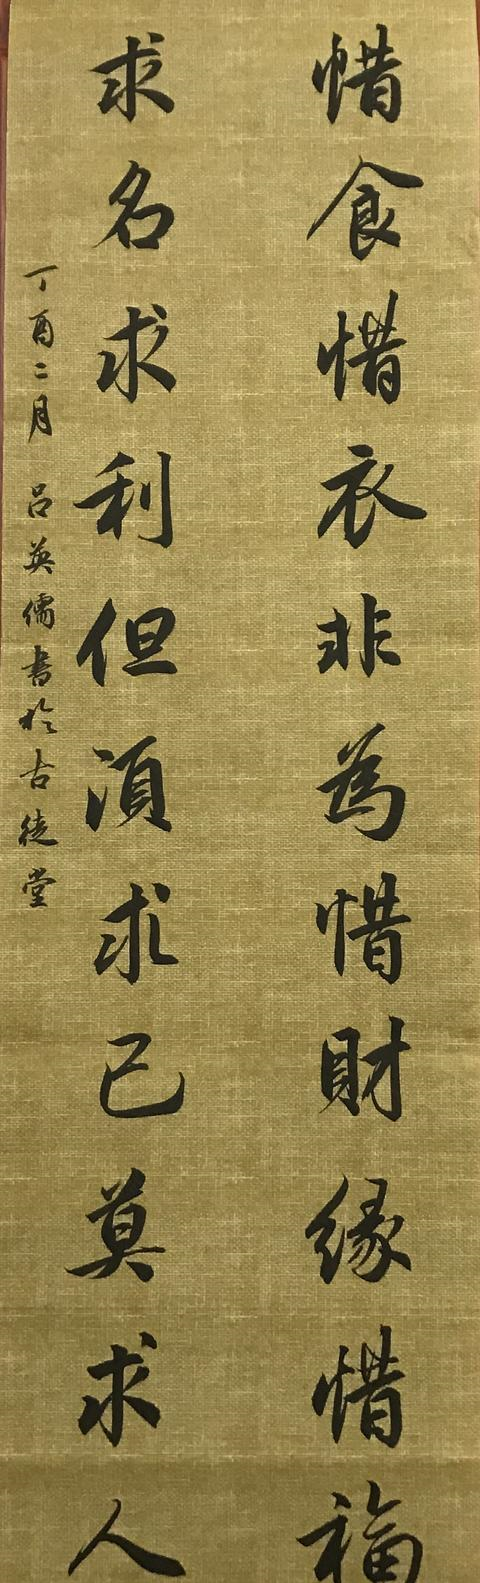 惜食惜衣非為惜財緣惜福
求名求利但須求己莫求人
丁酉二月 吕英儒書於古徒堂